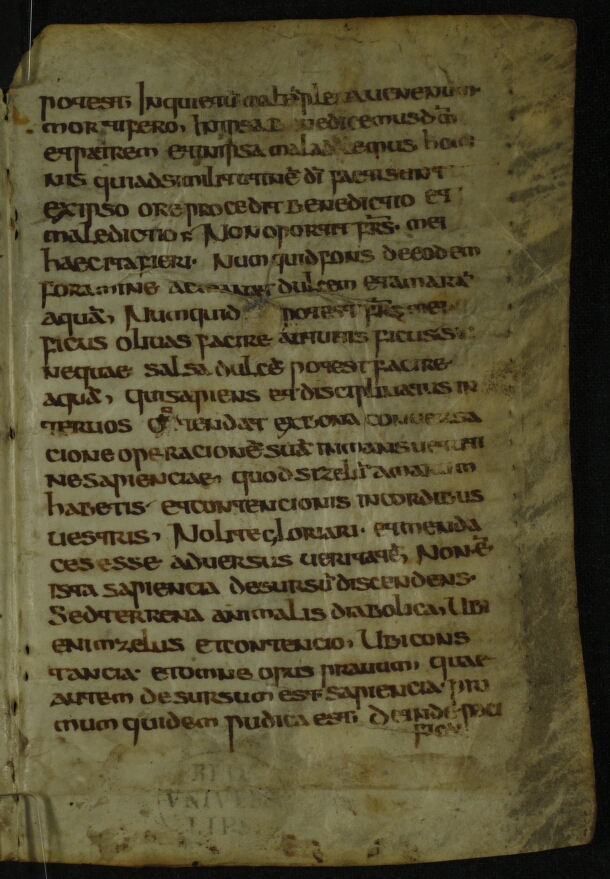 potest; Inquietū malū plena ueneno
mortifero, Inipsa benedicemus dm̄
etpatrem etinipsa maledicemus homi
nis quiadsimilitutinē dī factisunt
exipso ore procedit benedictio et
maledictio; Nonoportit frs̄. mei
haecitafieri. Numquidfons deeodem
foramine dulcem etamarā
aquā, Numquid potest frs̄ mei
ficus oliuas facire autuitis ficus
nequae salsa dulcē potest facire
aquā, quisapiens etdisciplinatus in
teruos ostendat exbona conuersa
cione operacionē suā inmansuetuti
nesapienciae, quodsizelū amarum
habetis etcontencionis incordibus
uestris, Nolitegloriari. etmenda
ces esse aduersus ueritatē, Nonē
ista sapiencia desursū discendens.
Sedterrena animalis diabolica, Ubi
enimzelus etcontencio, Ubicons
tancia. etomne opus prauum, quae
autem desursum est sapiencia pri
mum quidem pudica est; deinde paci
fica
BIBL
UNIVERS
LIPS